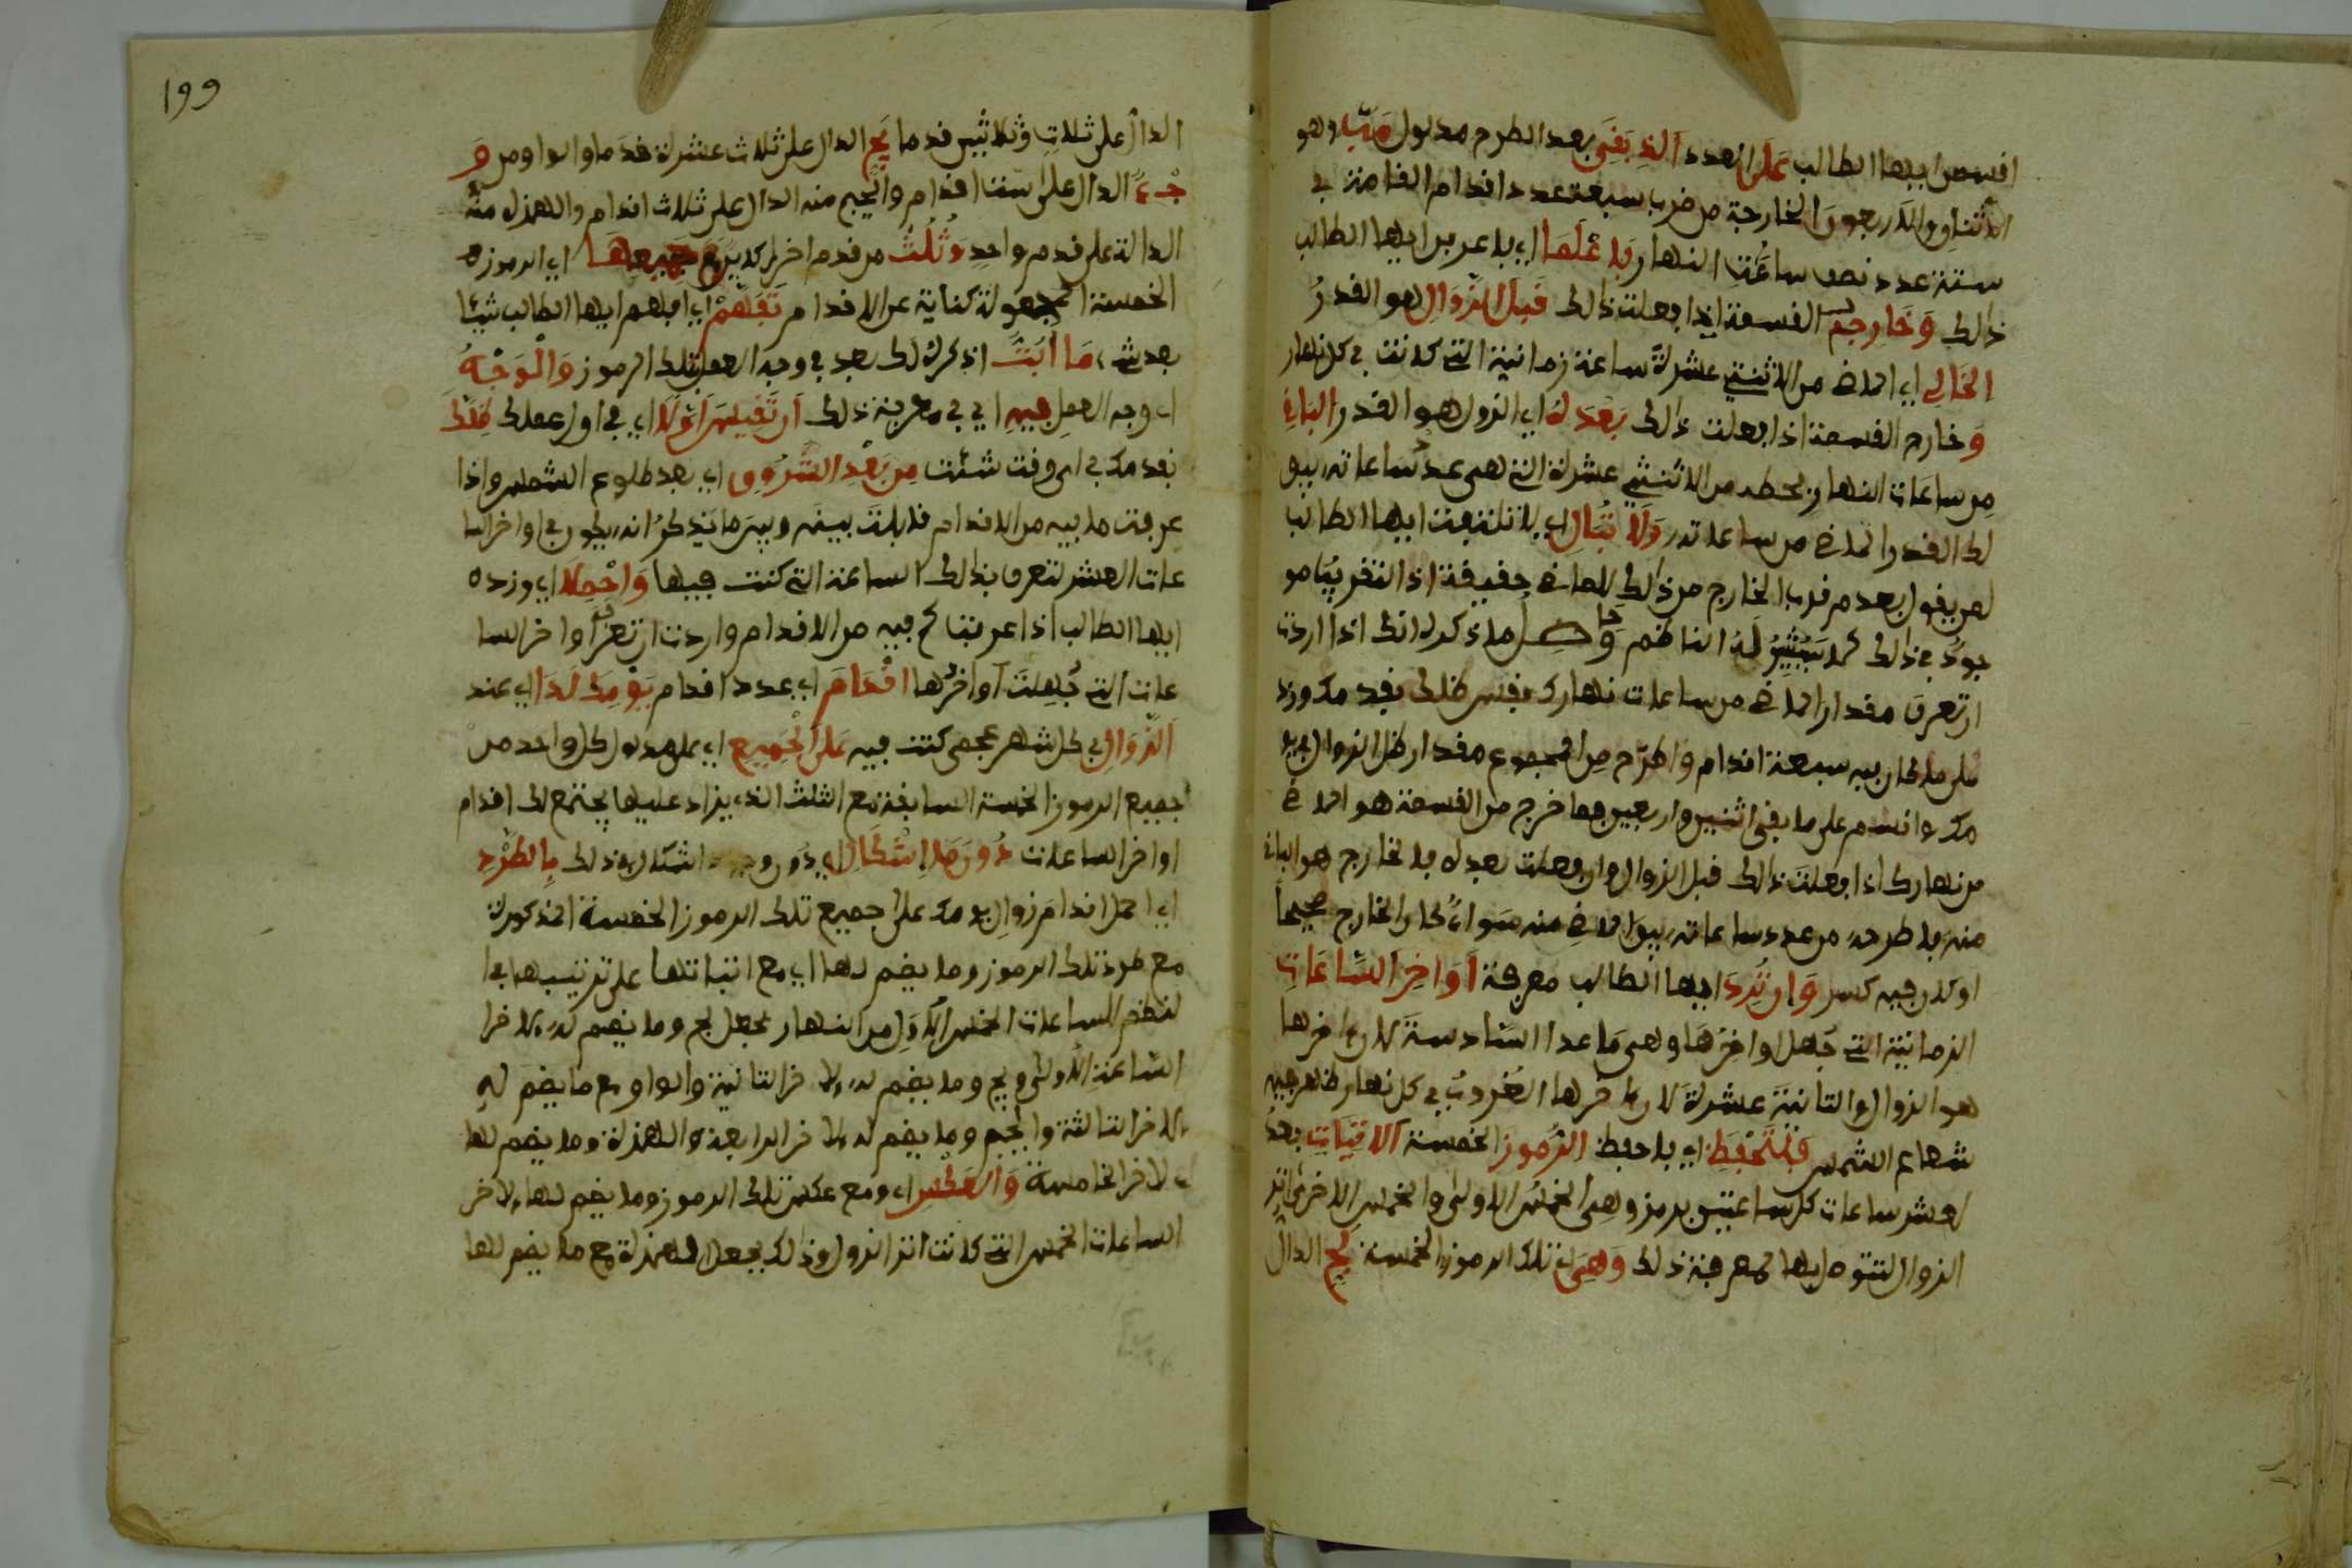 اقسمن ايها الطالب على العدد الذي بقي بعد الطرح مدلول مب وهو
الاثنان والاربعون الخارجة من ضرب سبعة عدد اقدام القامة في
ستة عدد نصف ساعات النهار فاعلما اي فاعرفن ايها الطالب
ذلك وخارج القسمة اذا فعلت ذلك قبل الزوال هو القدر
الخالي اي الماضي من الاثنتي عشرة ساعة زمانية التي كانت في كل نهار
وخارج القسمة اذا فعلت ذلك بعد له اي الزوال هو القدر الباقي
من ساعات النهار فحطه من الاثنتي عشرة التي هي عدد ساعاته يبق
لك القدر الماضي من ساعاته ولا تبال اي لا تلتفت ايها الطالب
لمن يقول بعدم قرب الخارج من ذلك للماضي حقيقة اذ التقريب مو
جود في ذلك كما يشير له الناظم وحاصل ما ذكره انك اذا اردت
ان تعرف مقدار الماضي من ساعات نهارك فقس ظلك بقدمك وزد
على ما كان فيه سبعة اقدام واطرح من المجموع مقدار ظل الزوال في يو
مك واقسم على ما بقي اثنين واربعين فما خرج من القسمة هو الماضي
من نهارك اذا فعلت ذلك قبل الزوال وان فعلت بعده فالخارج هو الباقي
منه فاطرحه من عدد ساعاته يبق الماضي منه سواء كان الخارج صحيحا
او كان فيه كسر وان ترد ايها الطالب معرفة اواخر الساعات
الزمانية التي جهل اواخرها وهي ما عدا السادسة لان اخرها
هو الزوال والثانية عشرة لان اخرها الغروب في كل نهار ظهر فيه
شعاع الشمس فلتحفظ اي فاحفظ الرموز الخمسة الاتيات بعد
لعشر ساعات كل ساعتين برمز وهي الخمس الاولى والخمس الاخرى اثر
الزوال لتتوصل بها لمعرفة ذلك وهي اي تلك الرموز الخمسة لج الدال
199
الدال على ثلاث وثلاثين قدما يج الدال على ثلاث عشرة قدما والواو من و
جء الدال على ست اقدام والجيم منه الدال على ثلاث اقدام والهمزة منه
الدالة على قدم واحد وثلث من قدم اخر كاين مع جميعها اي الرموز
الخمسة المجعولة كناية عن الاقدام تفهم اي افهم ايها الطالب شيئا
بعد شيء ما ابت اذكره لك بعد في وجه العمل بتلك الرموز والوجه
اي وجه العمل فيه اي في معرفة ذلك ان تقيس اولا اي في اول عملك ظلك
بقدمك في اي وقت شئت من بعد الشروق اي بعد طلوع الشمس واذا
عرفت ما فيه من الاقدام قابلت بينه وبين ما يذكر انه يكون في اواخر السا
عات العشر لتعرف بذلك الساعة التي كنت فيها واحملا اي وزده
ايها الطالب اذا عرفت كم فيه من الاقدام واردت ان تعرف اواخر السا
عات التي جهلت اواخرها اقدام اي عدد اقدام يومك لدا اي عند
الزوال في كل شهر عجمي كنت فيه على الجميع اي على مدلول كل واحد من
جميع الرموز الخمسة السابقة مع الثلث الذي يزاد عليها يجتمع لك اقدام
اواخر الساعات دون ما اشكال اي دون وجود اشكال في ذلك بالطرد
اي احمل اقدام زوال يومك على جميع تلك الرموز الخمسة المذكورة
مع طرد تلك الرموز وما يضم لها اي مع اثباتها على ترتيبها في ا
لنظم للساعات الخمس الاول من النهار بجعل لج وما يضم له لاخر ا
لساعة الاولى ويج وما يضم له لاخر الثانية والواو مع ما يضم له
لاخر الثالثة والجيم وما يضم له لاخر الرابعة والهمزة وما يضم لها
لاخر الخامسة والعكس اي ومع عكس تلك الرموز وما يضم لها لاخر
الساعات الخمس التي كانت اثر الزوال وذلك بجعل الهمزة مع ما يضم لها